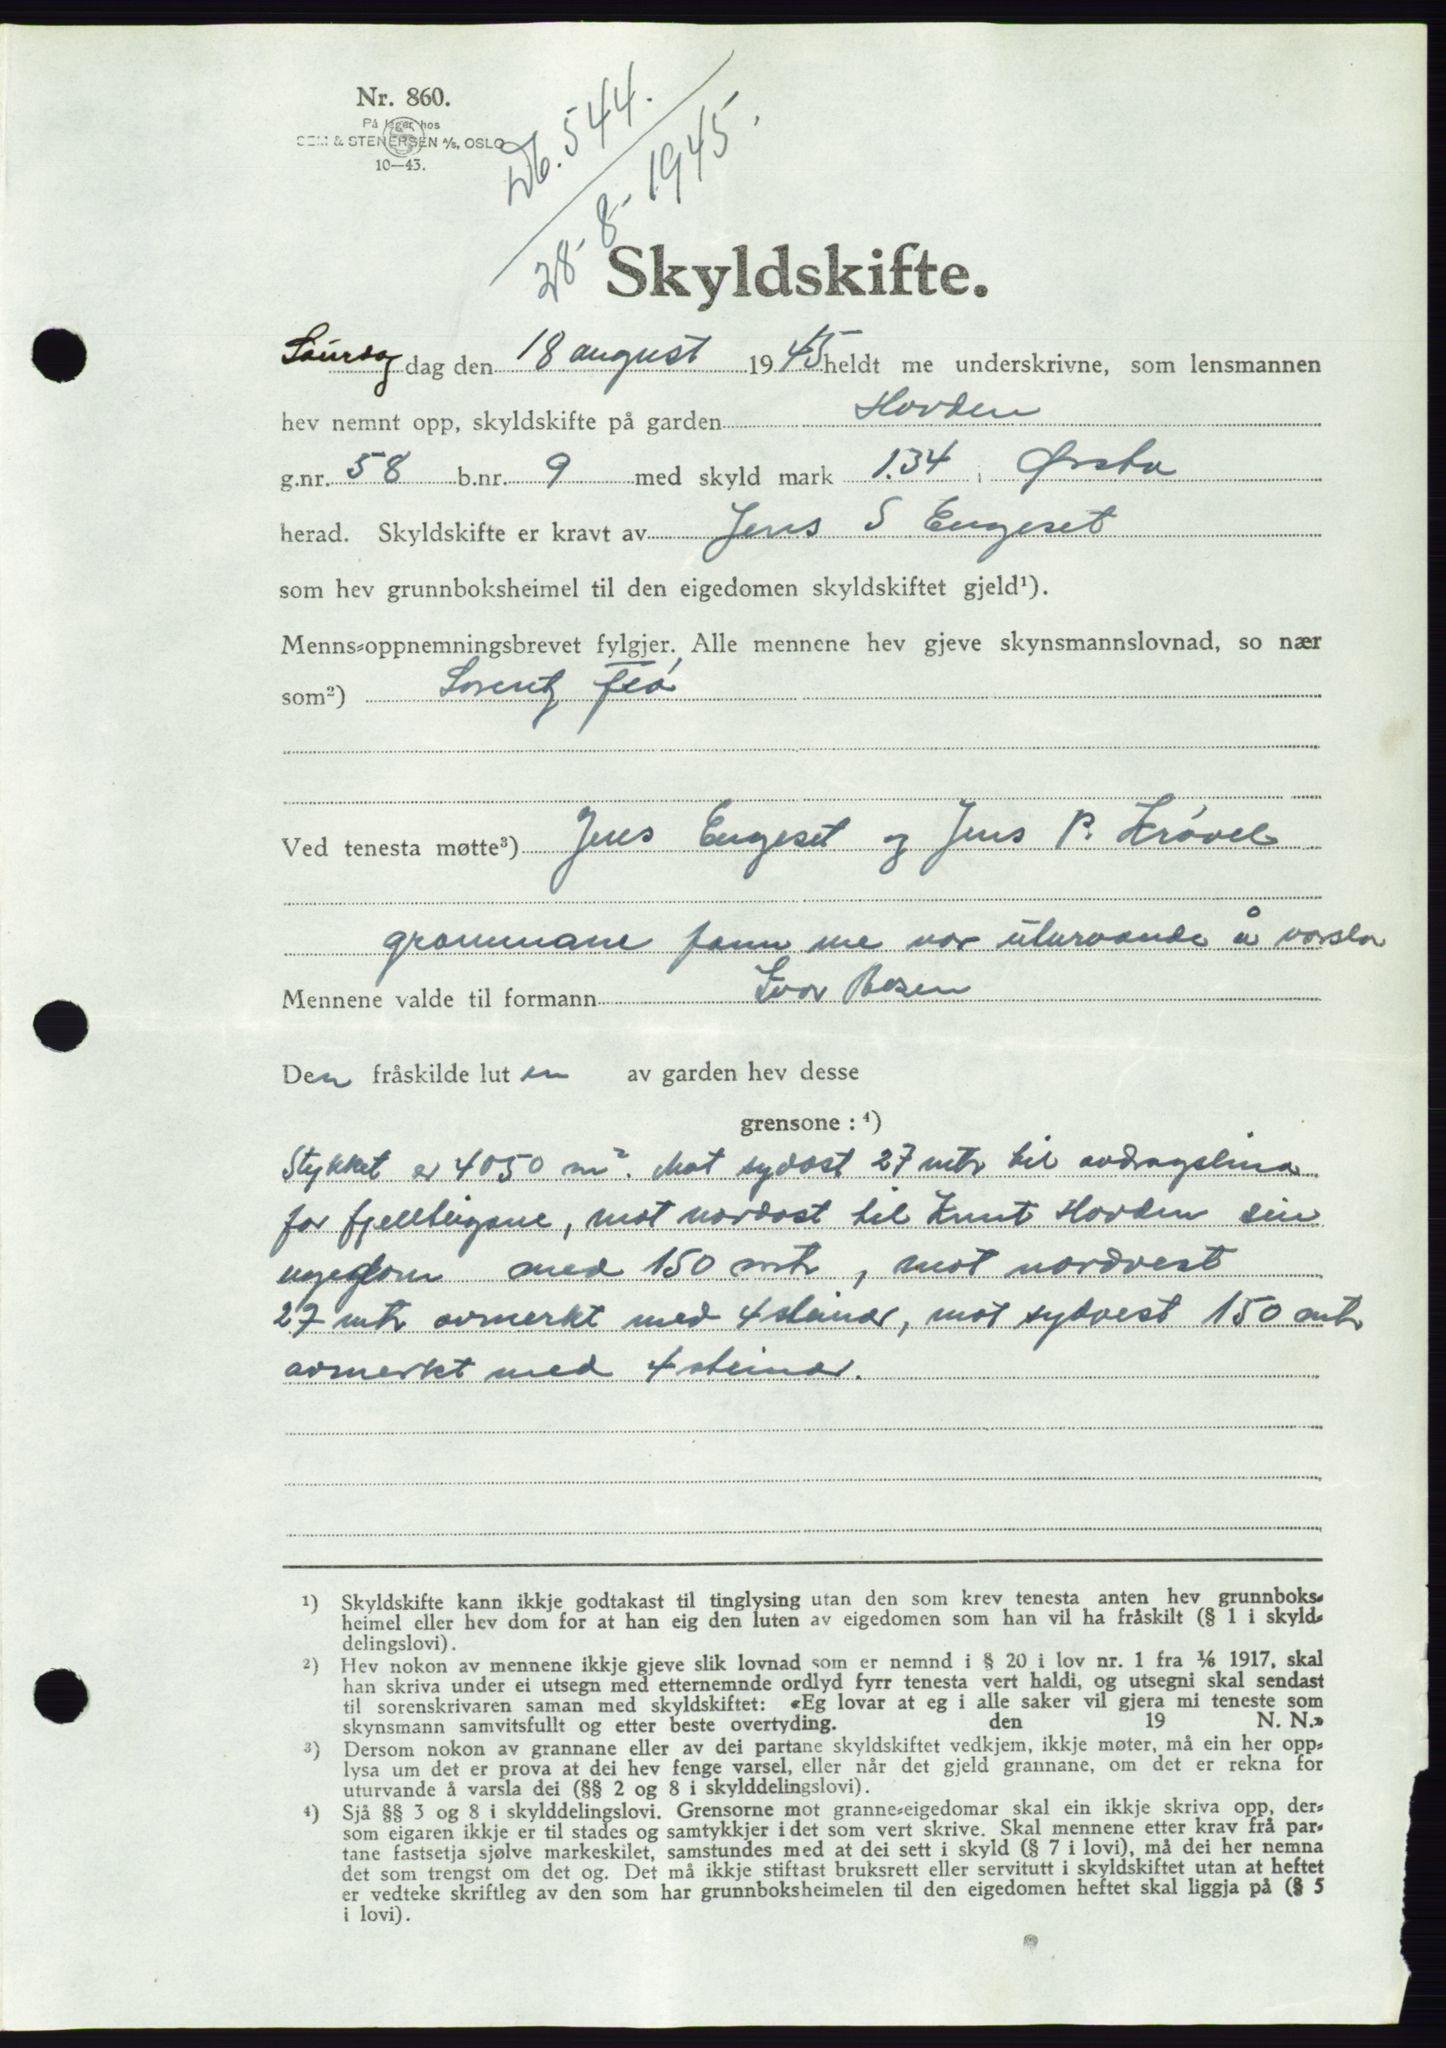 Nr. 860.
På lager hos
SEM & STENERSEN A/S, OSLO
10—43.
Db. 544.
28-8-1945.
Skyldskifte.
Laurdag dag den 18 august 1945 heldt me underskrivne, som lensmannen
hev nemnt opp, skyldskifte på garden Hovden
g.nr. 58 b.nr. 9 med skyld mark 1.34 i Ørsta
herad. Skyldskifte er kravt av Jens S Engeset
som hev grunnboksheimel til den eigedomen skyldskiftet gjeld¹).
Menns-oppnemningsbrevet fylgjer. Alle mennene hev gjeve skynsmannslovnad, so nær
som²) Lorentz Flø
Ved tenesta møtte³) Jens Engeset og Jens P. Krøvel
grannane fann me var uturvande å varsla
Mennene valde til formann Ivar Rosen
Den fråskilde luten av garden hev desse
grensone : ⁴)
Stykket er 4050 m². Mot sydost 27 mtr til avdragslina
for fjellbeigane, mot nordost til Knut Hovden sin
eigedom med 150 mtr, mot nordvest
27 mtr avmerkt med 4 steinar, mot sydvest 150 mtr
avmerkt med 4 steinar.
¹) Skyldskifte kann ikkje godtakast til tinglysing utan den som krev tenesta anten hev grunnboks-
heimel eller hev dom for at han eig den luten av eigedomen som han vil ha fråskilt (§ 1 i skyld-
delingslovi).
²) Hev nokon av mennene ikkje gjeve slik lovnad som er nemnd i § 20 i lov nr. 1 fra 1/6 1917, skal
han skriva under ei utsegn med etternemnde ordlyd fyrr tenesta vert haldi, og utsegni skal sendast
til sorenskrivaren saman med skyldskiftet: «Eg lovar at eg i alle saker vil gjera mi teneste som
skynsmann samvitsfullt og etter beste overtyding. den 19 N. N.»
³) Dersom nokon av grannane eller av dei partane skyldskiftet vedkjem, ikkje møter, må ein her opp-
lysa um det er prova at dei hev fenge varsel, eller når det gjeld grannane, om det er rekna for
uturvande å varsla dei (§§ 2 og 8 i skylddelingslovi).
⁴) Sjå §§ 3 og 8 i skylddelingslovi. Grensorne mot granne-eigedomar skal ein ikkje skriva opp, der-
som eigaren ikkje er til stades og samtykkjer i det som vert skrive. Skal mennene etter krav frå par-
tane fastsetja sjølve markeskilet, samstundes med at dei sett i skyld (§ 7 i lovi), må dei her nemna
det som trengst om det og. Det må ikkje stiftast bruksrett eller servitutt i skyldskiftet utan at heftet
er vedteke skriftleg av den som har grunnboksheimelen til den eigedomen heftet skal liggja på (§ 5
i lovi).